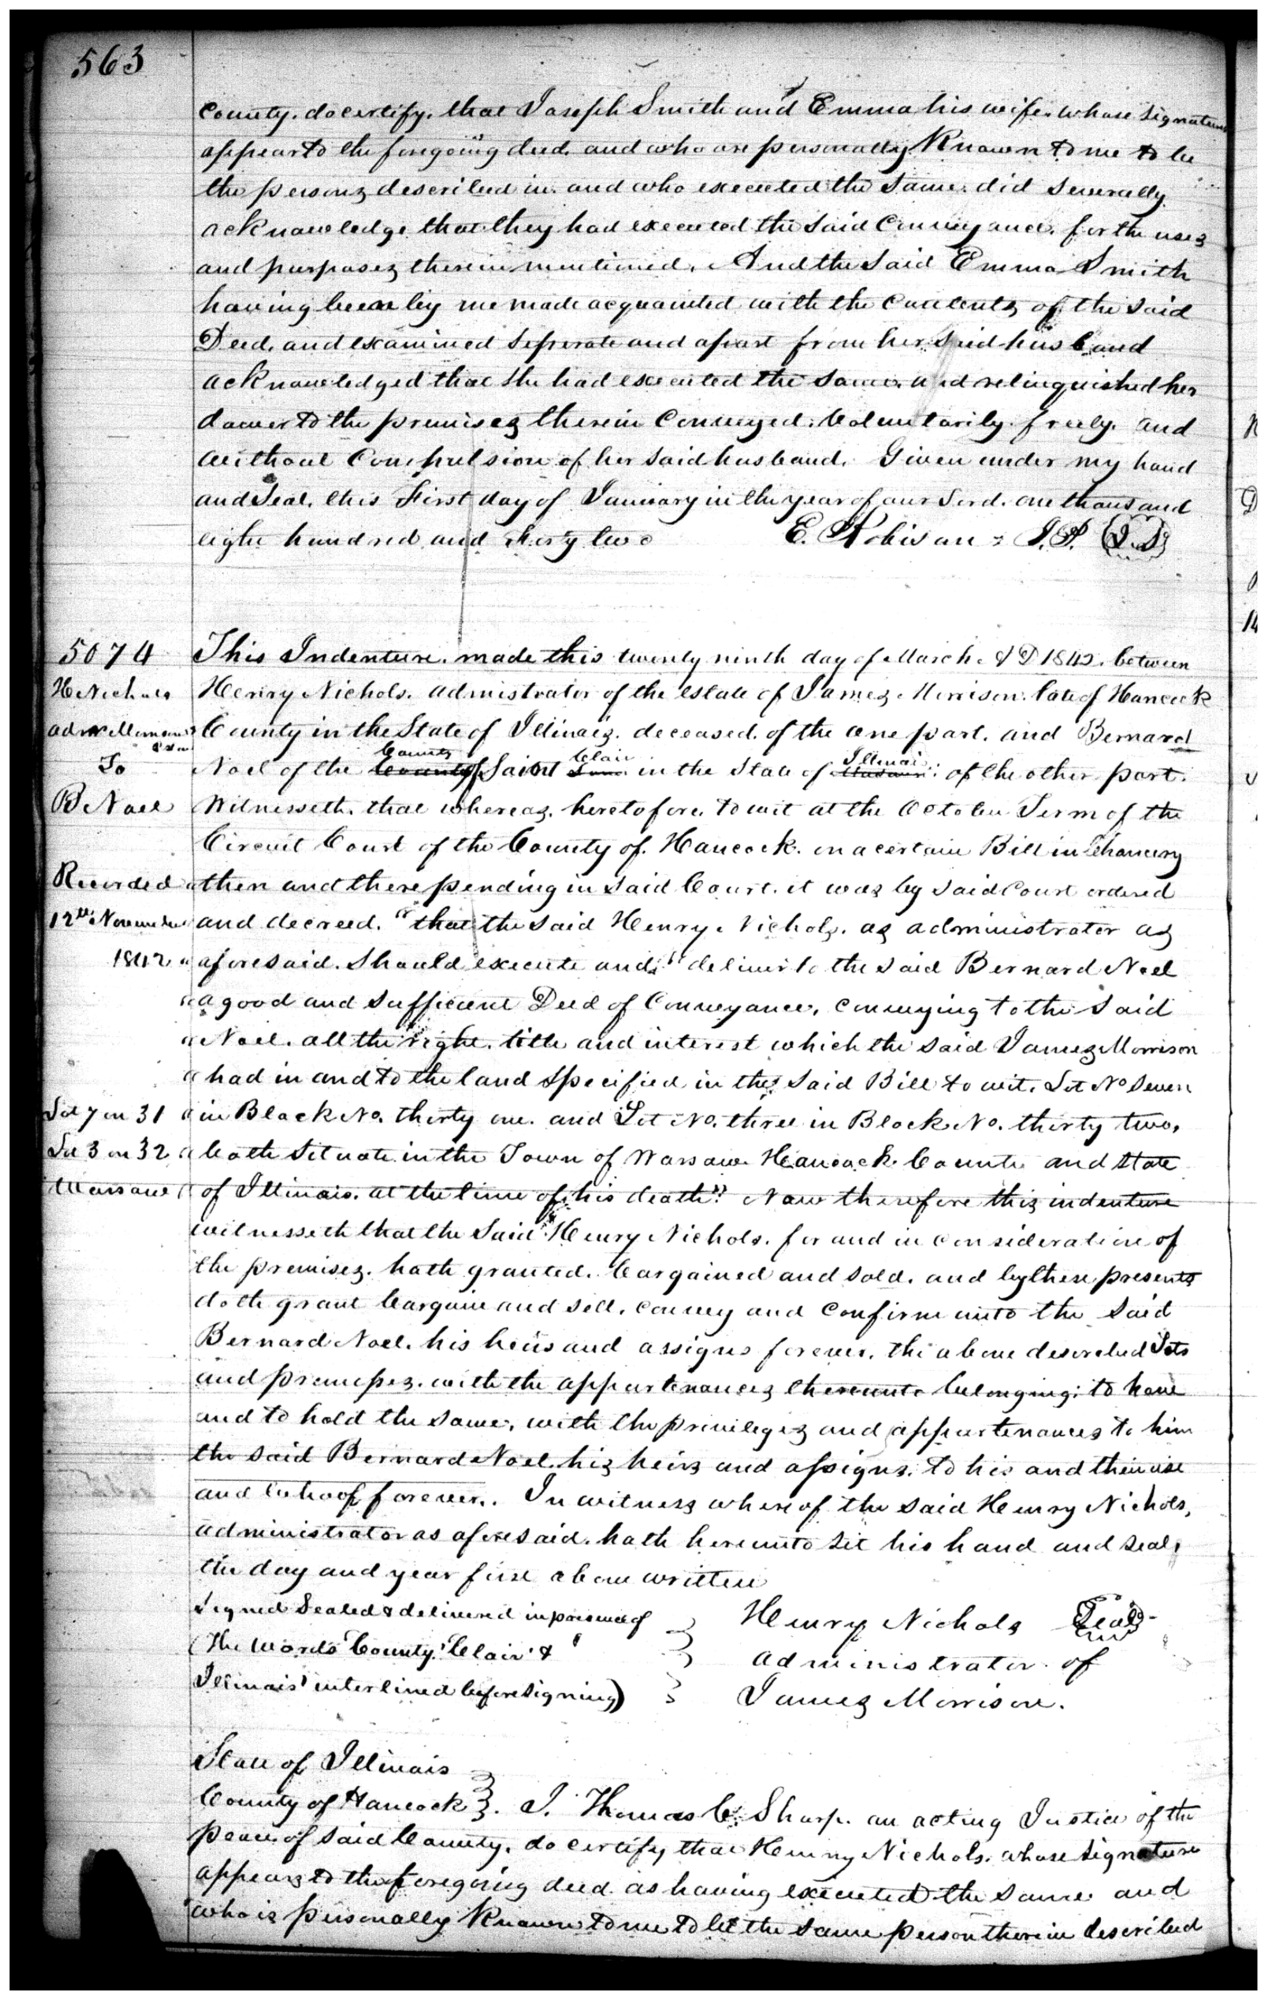 563
County, do certify, that Joseph Smith and Emma his wife, whose signatures
appear to the foregoing deed, and who are personally Known to me to be
the persons described in, and who executed the same, did severally
acknowledge that they had executed the said Conveyance, for the uses
and purposes therein mentioned, And the said Emma Smith
having been by me made acquainted with the contents of the said
Deed, and examined seperate and apart from her said husband
acknowledged that she had executed the same, and relinquished her
dower to the premises therein Conveyed, Voluntarily, freely, and
without Compulsion of her said husband, Given under my hand
and Seal, this First day of January in the year of our Lord, one thousand
eight hundred and Forty two E. Robison = J. P. (L. S.)
5074 This Indenture, made this twenty ninth day of March, A D 1842, between
H Nichols Henry Nichols, admistrator of the estate of James Morrison, late of Hancock
adm Morrison County in the State of Illinois, deceased, of the one part, and Bernard
County Clair Illinois
To Noel of the County of Saint in the State of of the other part,
B Noel Witnesseth, that whereas, heretofore, to wit at the October Term of the
Circuit Court of the County of Hancock, on a certain Bill in Chancery
Recorded then and there pending in said Court, it was by said Court ordered
12th November and decreed, "that the said Henry Nichols, as administrator as
1842 " aforesaid, should execute and deliver to the said Bernard Noel
" a good and sufficient Deed of Conveyance, conveying to the said
" Noel, all the right, title and interest which the said James Morrison
" had in and to the land specified in the said Bill to wit, Lot No Seven
Lot 7 in 31 " in Block No. thirty one, and Lot No. three in Block No. thirty two,
Lot 3 in 32 " both situate in the Town of Warsaw Hancock County and State
Warsaw " of Illinois, at the time of his death" Now therefore this indenture
witnesseth that the said Henry Nichols, for and in consideration of
the premises, hath granted, bargained and sold, and by these presents
doth grant bargain and sell, convey and confirm unto the said
Bernard Noel, his heirs and assigns forever, the above described Lots
and premises, with the appurtenances thereunto belonging; to have
and to hold the same, with the privileges and appurtenances to him
the said Bernard Noel, his heirs and assigns, to his and their use
and behoof forever. In witness whereof the said Henry Nichols,
administrator as aforesaid, hath hereunto set his hand and seal,
the day and year first above written
Signed Sealed & delivered in presence of Henry Nichols Seal
(The words 'County' 'Clair' & administrator of
Illinois' interlined before signing) James Morrison.
State of Illinois
County of Hancock I, Thomas C. Sharp, an acting Justice of the
peace, of said County, do certify that Henry Nichols, whose signature
appears to the foregoing deed as having executed the same and
who is personally Known to me to be the same person therein described